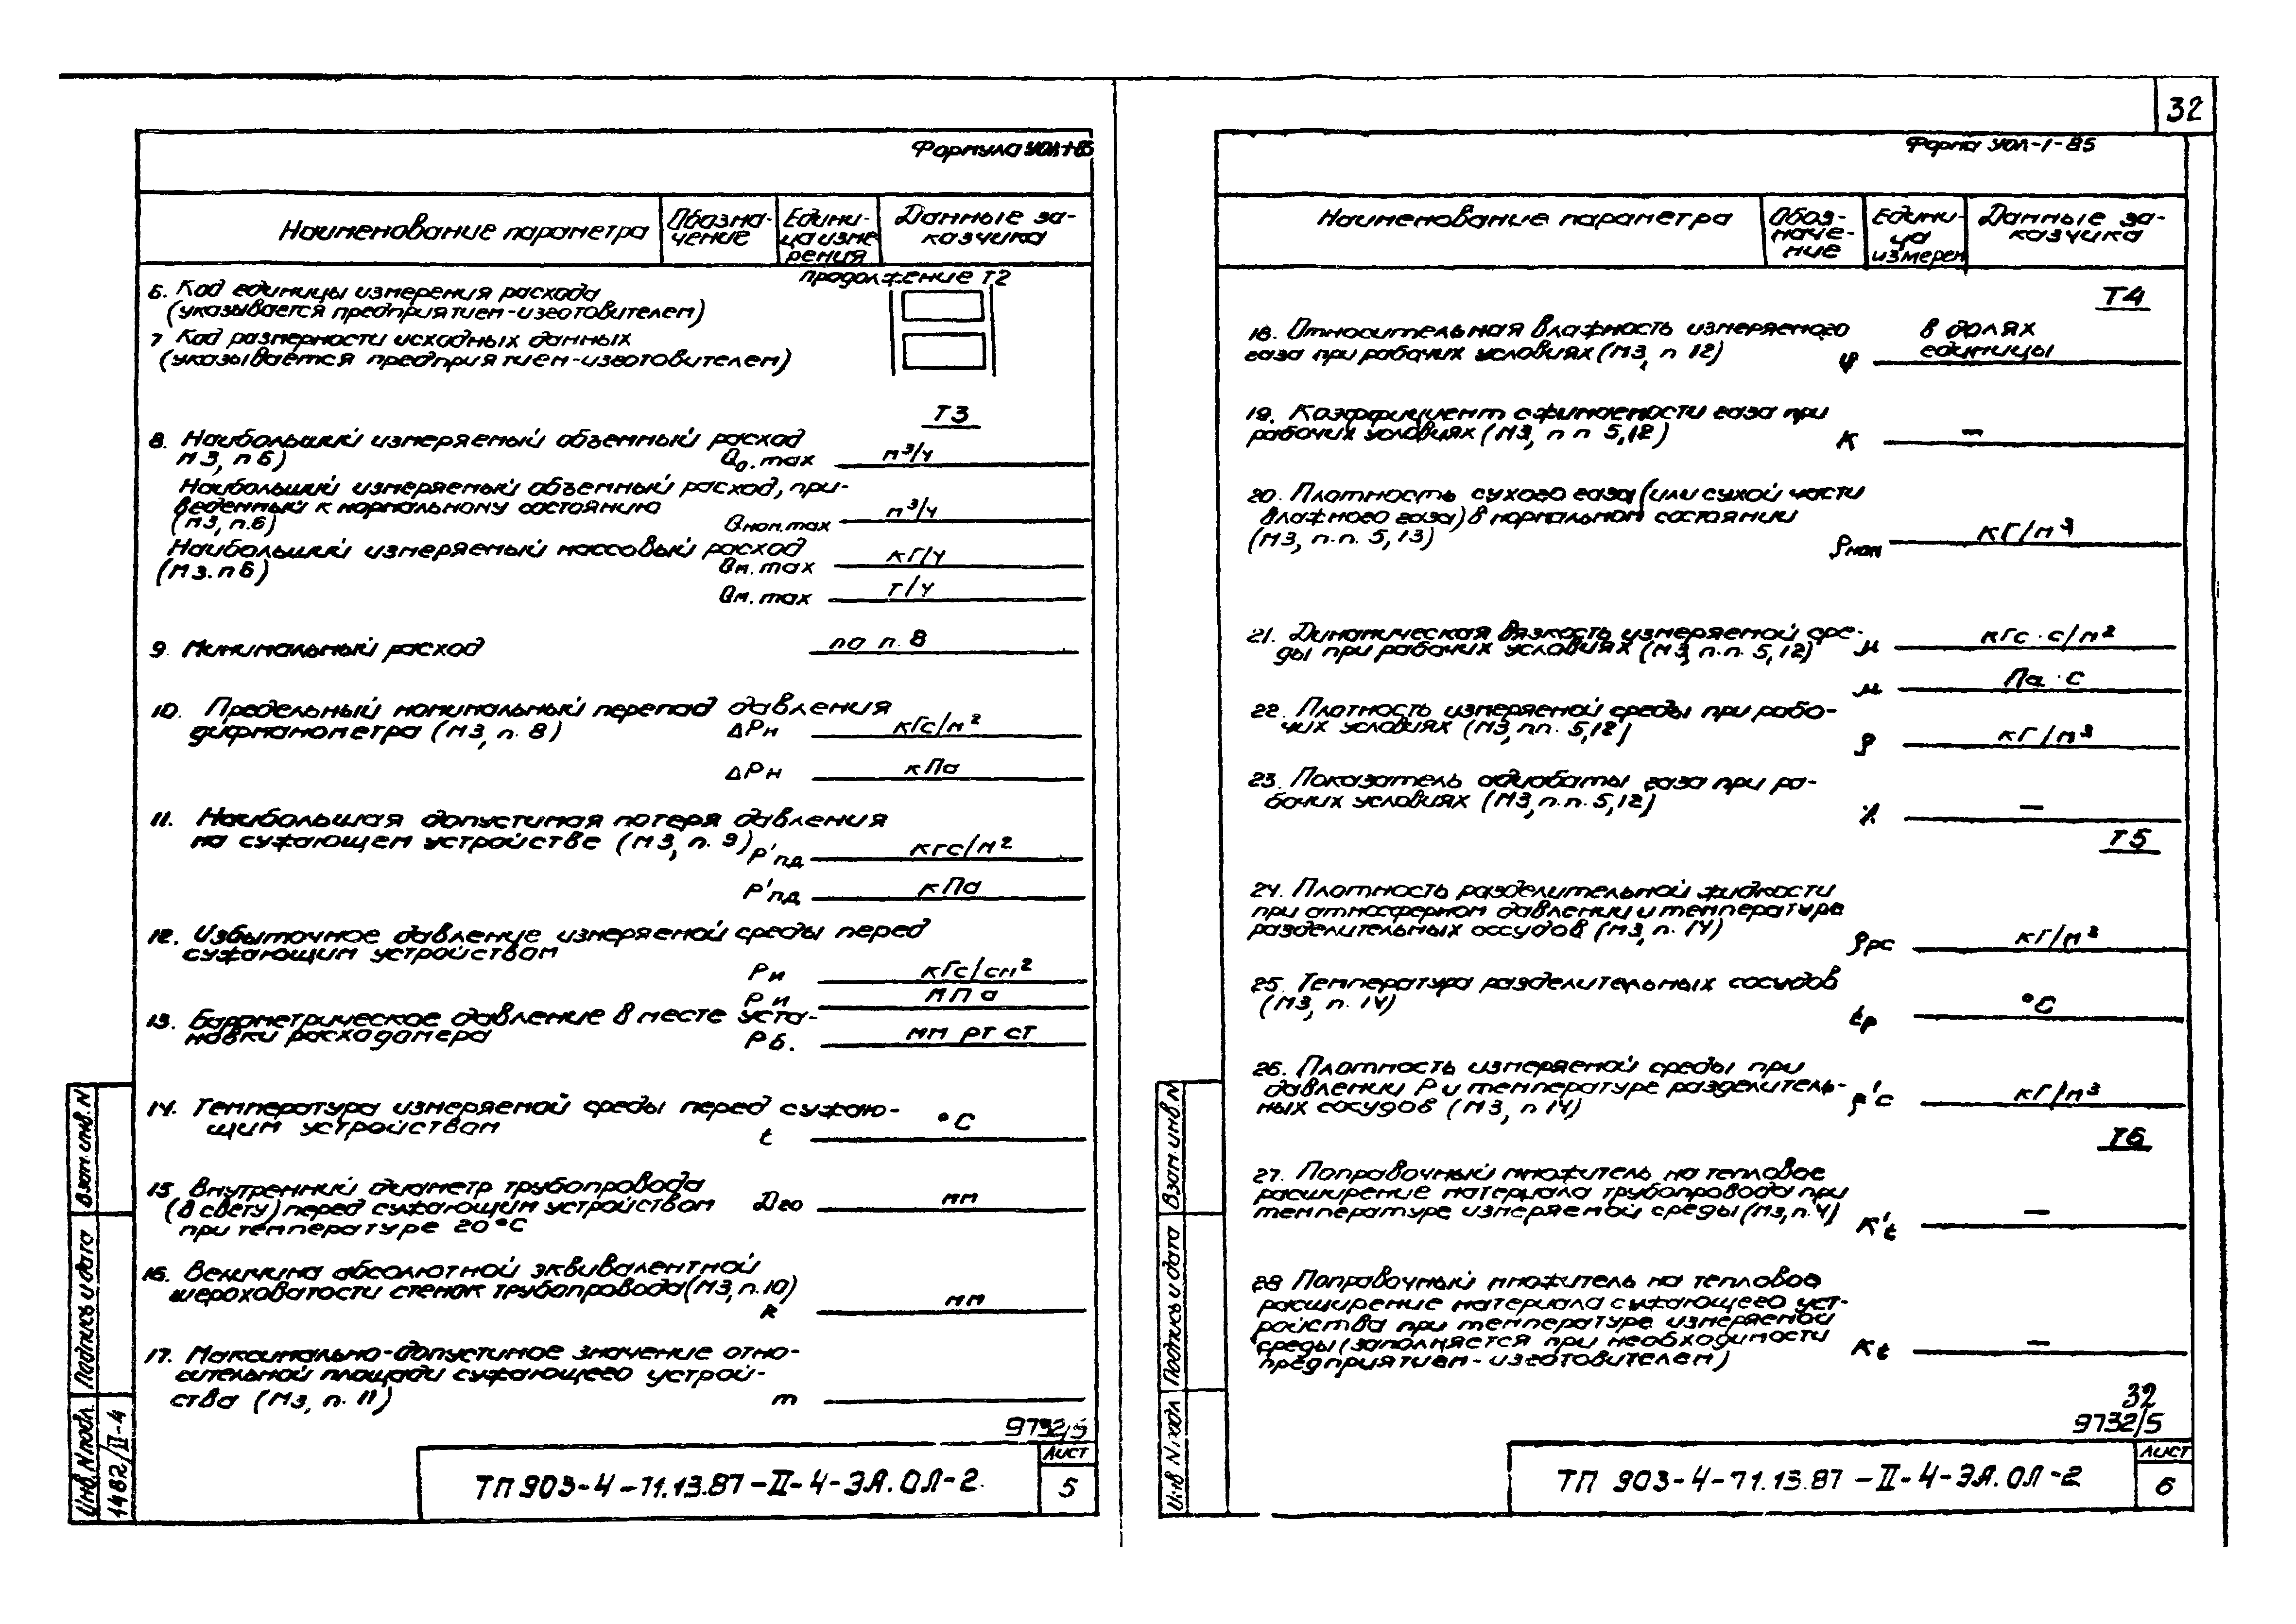 32
Формула УОЛ-1-85
Наименование параметра
Обозна-
чение
Едини-
ца изме
рения
Данные за-
казчика
продолжение Т2
6. Код единицы измерения расхода
(указывается предприятием-изготовителем)
7 Код размерности исходных данных
(указывается предприятием-изготовителем)
Т3
8. Наибольший измеряемый объемный расход
М3, п6) Qо.max м³/ч
Наибольший измеряемый объемный расход, при-
веденный к нормальному состоянию
(М3, п.6) Qном.max м³/ч
Наибольший измеряемый массовый расход
(М3. п6) Qм.max кГ/ч
Qм.max т/ч
9. Минимальный расход по п. 8
10. Предельный номинальный перепад давления
дифманометра (М3, п. 8) ΔРн кГс/м²
ΔРн кПа
11. Наибольшая допустимая потеря давления
на сужающем устройстве (М3, п. 9) Р'пд кгс/м²
Р'пд кПа
12. Избыточное давление измеряемой среды перед
сужающим устройством
Ри кГс/см²
Ри МПа
13. Барометрическое давление в месте уста-
новки расходомера Рб. мм рт ст
14. Температура измеряемой среды перед сужаю-
щим устройством t °С
15 Внутренний диаметр трубопровода
(в свету) перед сужающим устройством D20 мм
при температуре 20°С
16. Величина абсолютной эквивалентной
шероховатости стенок трубопровода (М3, п. 10)
k мм
17. Максимально-допустимое значение отно-
сительной площади сужающего устрой-
ства (М3, п. 11) m
9732/5
ТП 903-4-71.13.87-II-4-ЭА.ОЛ-2.
Лист
5
Взам. инв. N
Подпись и дата
Инв. N подл
1482/II-4
Форма УОЛ-1-85
Наименование параметра
Обоз-
наче-
ние
Едини-
ца
измерен
Данные за-
казчика
Т4
18. Относительная влажность измеряемого
газа при рабочих условиях (М3, п 12) φ
в долях
единицы
19. Коэффициент сжимаемости газа при
рабочих условиях (М3, п п 5,12) К —
20. Плотность сухого газа (или сухой части
влажного газа) в нормальном состоянии
(М3, п.п. 5, 13) ρном кГ/м³
21. Динамическая вязкость измеряемой сре-
ды при рабочих условиях (М3 п.п. 5,12) μ кГс · с/м²
μ Па · с
22. Плотность измеряемой среды при рабо-
чих условиях (М3, пп. 5,12) ρ кГ/м³
23. Показатель адиабаты газа при ра-
бочих условиях (М3, п.п. 5,12) χ —
Т5
24. Плотность разделительной жидкости
при атмосферном давлении и температуре
разделительных сосудов (М3, п. 14) ρрс кГ/м³
25. Температура разделительных сосудов
(М3, п. 14) tр °С
26. Плотность измеряемой среды при
давлении Р и температуре разделитель-
ных сосудов (М3, п 14) ρ'с кГ/м³
Т6
27. Поправочный множитель на тепловое
расширение материала трубопровода при
температуре измеряемой среды (М3, п. 4) К't —
28 Поправочный множитель на тепловое
расширение материала сужающего уст-
ройства при температуре измеряемой
среды (заполняется при необходимости
предприятием-изготовителем) Кt —
32
9732/5
ТП 903-4-71.13.87-II-4-ЭА.ОЛ-2
Лист
6
Взам. инв. N
Подпись и дата
Инв N подл